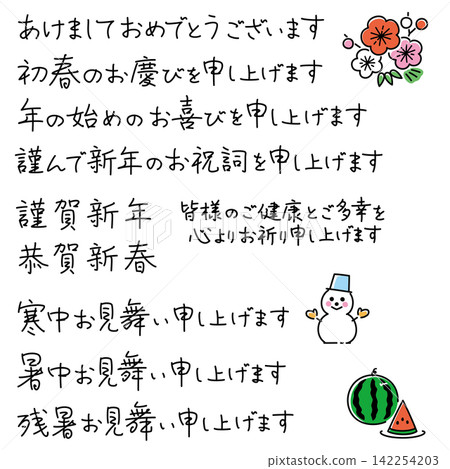 あけましておめでとうございます
初春のお慶びを申し上げます
年の始めのお喜びを申し上げます
謹んで新年のお祝詞を申し上げます
謹賀新年
恭賀新春
皆様のご健康とご多幸を
心よりお祈り申し上げます
寒中お見舞い申し上げます
暑中お見舞い申し上げます
残暑お見舞い申し上げます
142254203